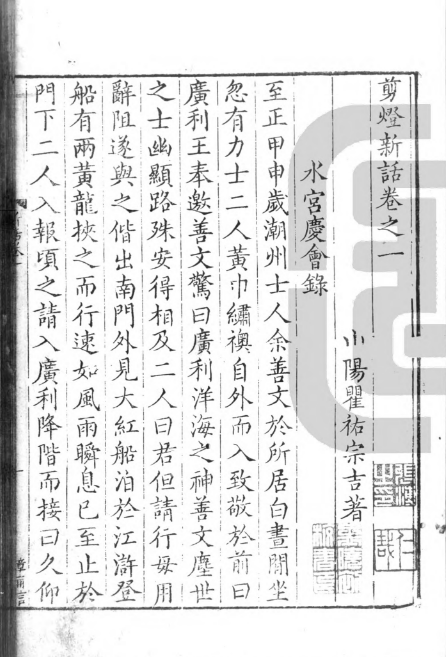 剪燈新話卷之一
山陽瞿祐宗吉著
水宮慶會錄
至正甲申歲潮州士人余善文於所居白晝閒坐
忽有力士二人黃巾繡襖自外而入致敬於前曰
廣利王奉邀善文驚曰廣利洋海之神善文塵世
之士幽顯路殊安得相及二人曰君但請行毋用
辭阻遂與之偕出南門外見大紅船泊於江滸登
船有兩黃龍挾之而行速如風雨瞬息已至止於
門下二人入報頃之請入廣利降階而接曰久仰